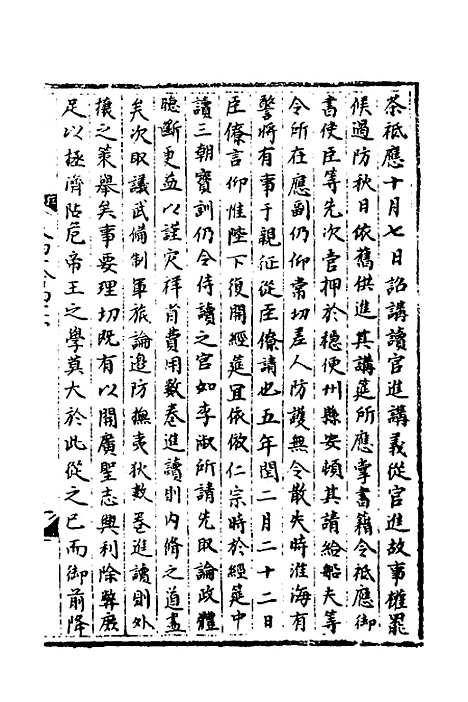 茶祗應十月七日詔講讀官進講義從官進故事權罷
候過防秋日依舊供進其講筵所應掌書籍令祗應御
書使臣等先次管押於穩便州縣安頓其請給船夫等
令所在應副仍仰常切差人防護無令散失時淮海有
警將有事于親征從臣僚請也五年閏二月二十二日
臣僚言仰惟陛下復開經筵宜依倣仁宗時於經筵中
讀三朝寳訓仍令侍讀之官如李淑所請先取論政體
聽斷更益以謹灾祥省費用數卷進讀則内脩之道盡
矣次取議武備制軍旅論邉防撫夷狄數卷進讀則外
攘之策舉矣事要理切既有以開廣聖志興利除弊庶
足以極濟阽危帝王之學莫大於此從之已而御前降